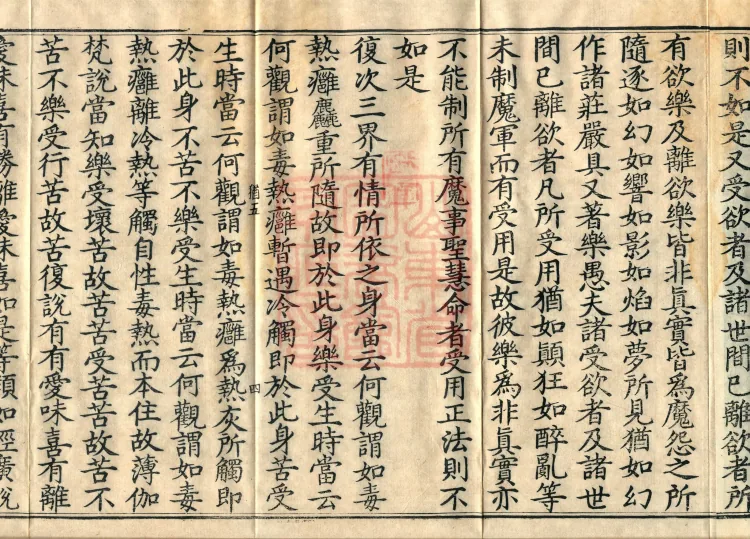 則不如是又受欲者及諸世間已離欲者所
有欲樂及離欲樂皆非真實皆為魔怨之所
隨逐如幻如響如影如焰如夢所見猶如幻
作諸莊嚴具又著樂愚夫諸受欲者及諸世
間已離欲者凡所受用猶如顛狂如醉亂等
未制魔軍而有受用是故彼樂為非真實亦
不能制所有魔事聖慧命者受用正法則不
如是
復次三界有情所依之身當云何觀謂如毒
熱癰麤重所隨故即於此身樂受生時當云
何觀謂如毒熱癰暫遇冷觸即於此身苦受
猶五
四
生時當云何觀謂如毒熱癰為熱灰所觸即
於此身不苦不樂受生時當云何觀謂如毒
熱癰離冷熱等觸自性毒熱而本住故薄伽
梵說當知樂受壞苦故苦苦受苦苦故苦不
苦不樂受行苦故苦復說有有愛味喜有離
愛味喜有勝離愛味喜如是等類如經廣說